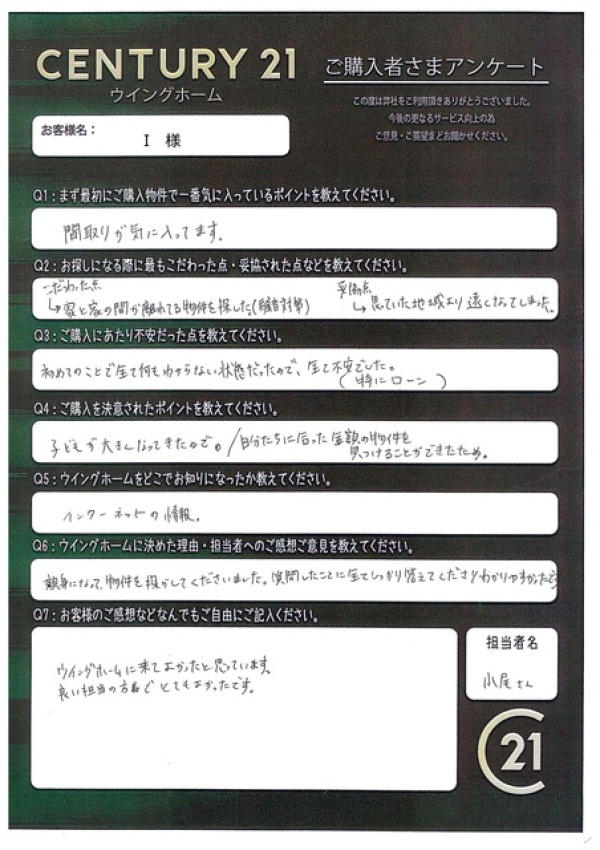 CENTURY 21
ウイングホーム
ご購入者さまアンケート
この度は弊社をご利用頂きありがとうございました。
今後の更なるサービス向上の為
ご意見・ご要望までお聞かせください。
お客様名：
I 様
Q1：まず最初にご購入物件で一番気に入っているポイントを教えてください。
間取りが気に入ってます。
Q2：お探しになる際に最もこだわった点・妥協された点などを教えてください。
こだわった点
↳家と家の間が離れてる物件を探した(騒音対策)
妥協点
↳思っていた地域より遠くなってしまった。
Q3：ご購入にあたり不安だった点を教えてください。
初めてのことで全て何もわからない状態だったので、全て不安でした。
(特にローン)
Q4：ご購入を決意されたポイントを教えてください。
子どもが大きくなってきたので。/自分たちに合った金額の物件を
見つけることができたため。
Q5：ウイングホームをどこでお知りになったか教えてください。
インターネットの情報。
Q6：ウイングホームに決めた理由・担当者へのご感想ご意見を教えてください。
親身になって、物件を探がしてくださいました。質問したことに全てしっかり答えてくださりわかりやすかったです
Q7：お客様のご感想などなんでもご自由にご記入ください。
ウイングホームに来てよかったと思っています。
良い担当の方でとてもよかったです。
担当者名
小尾さん
C21